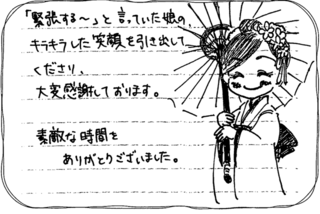 「緊張する〜」と言っていた娘の、
キラキラした笑顔を引き出して
くださり、
大変感謝しております。
素敵な時間を
ありがとうございました。